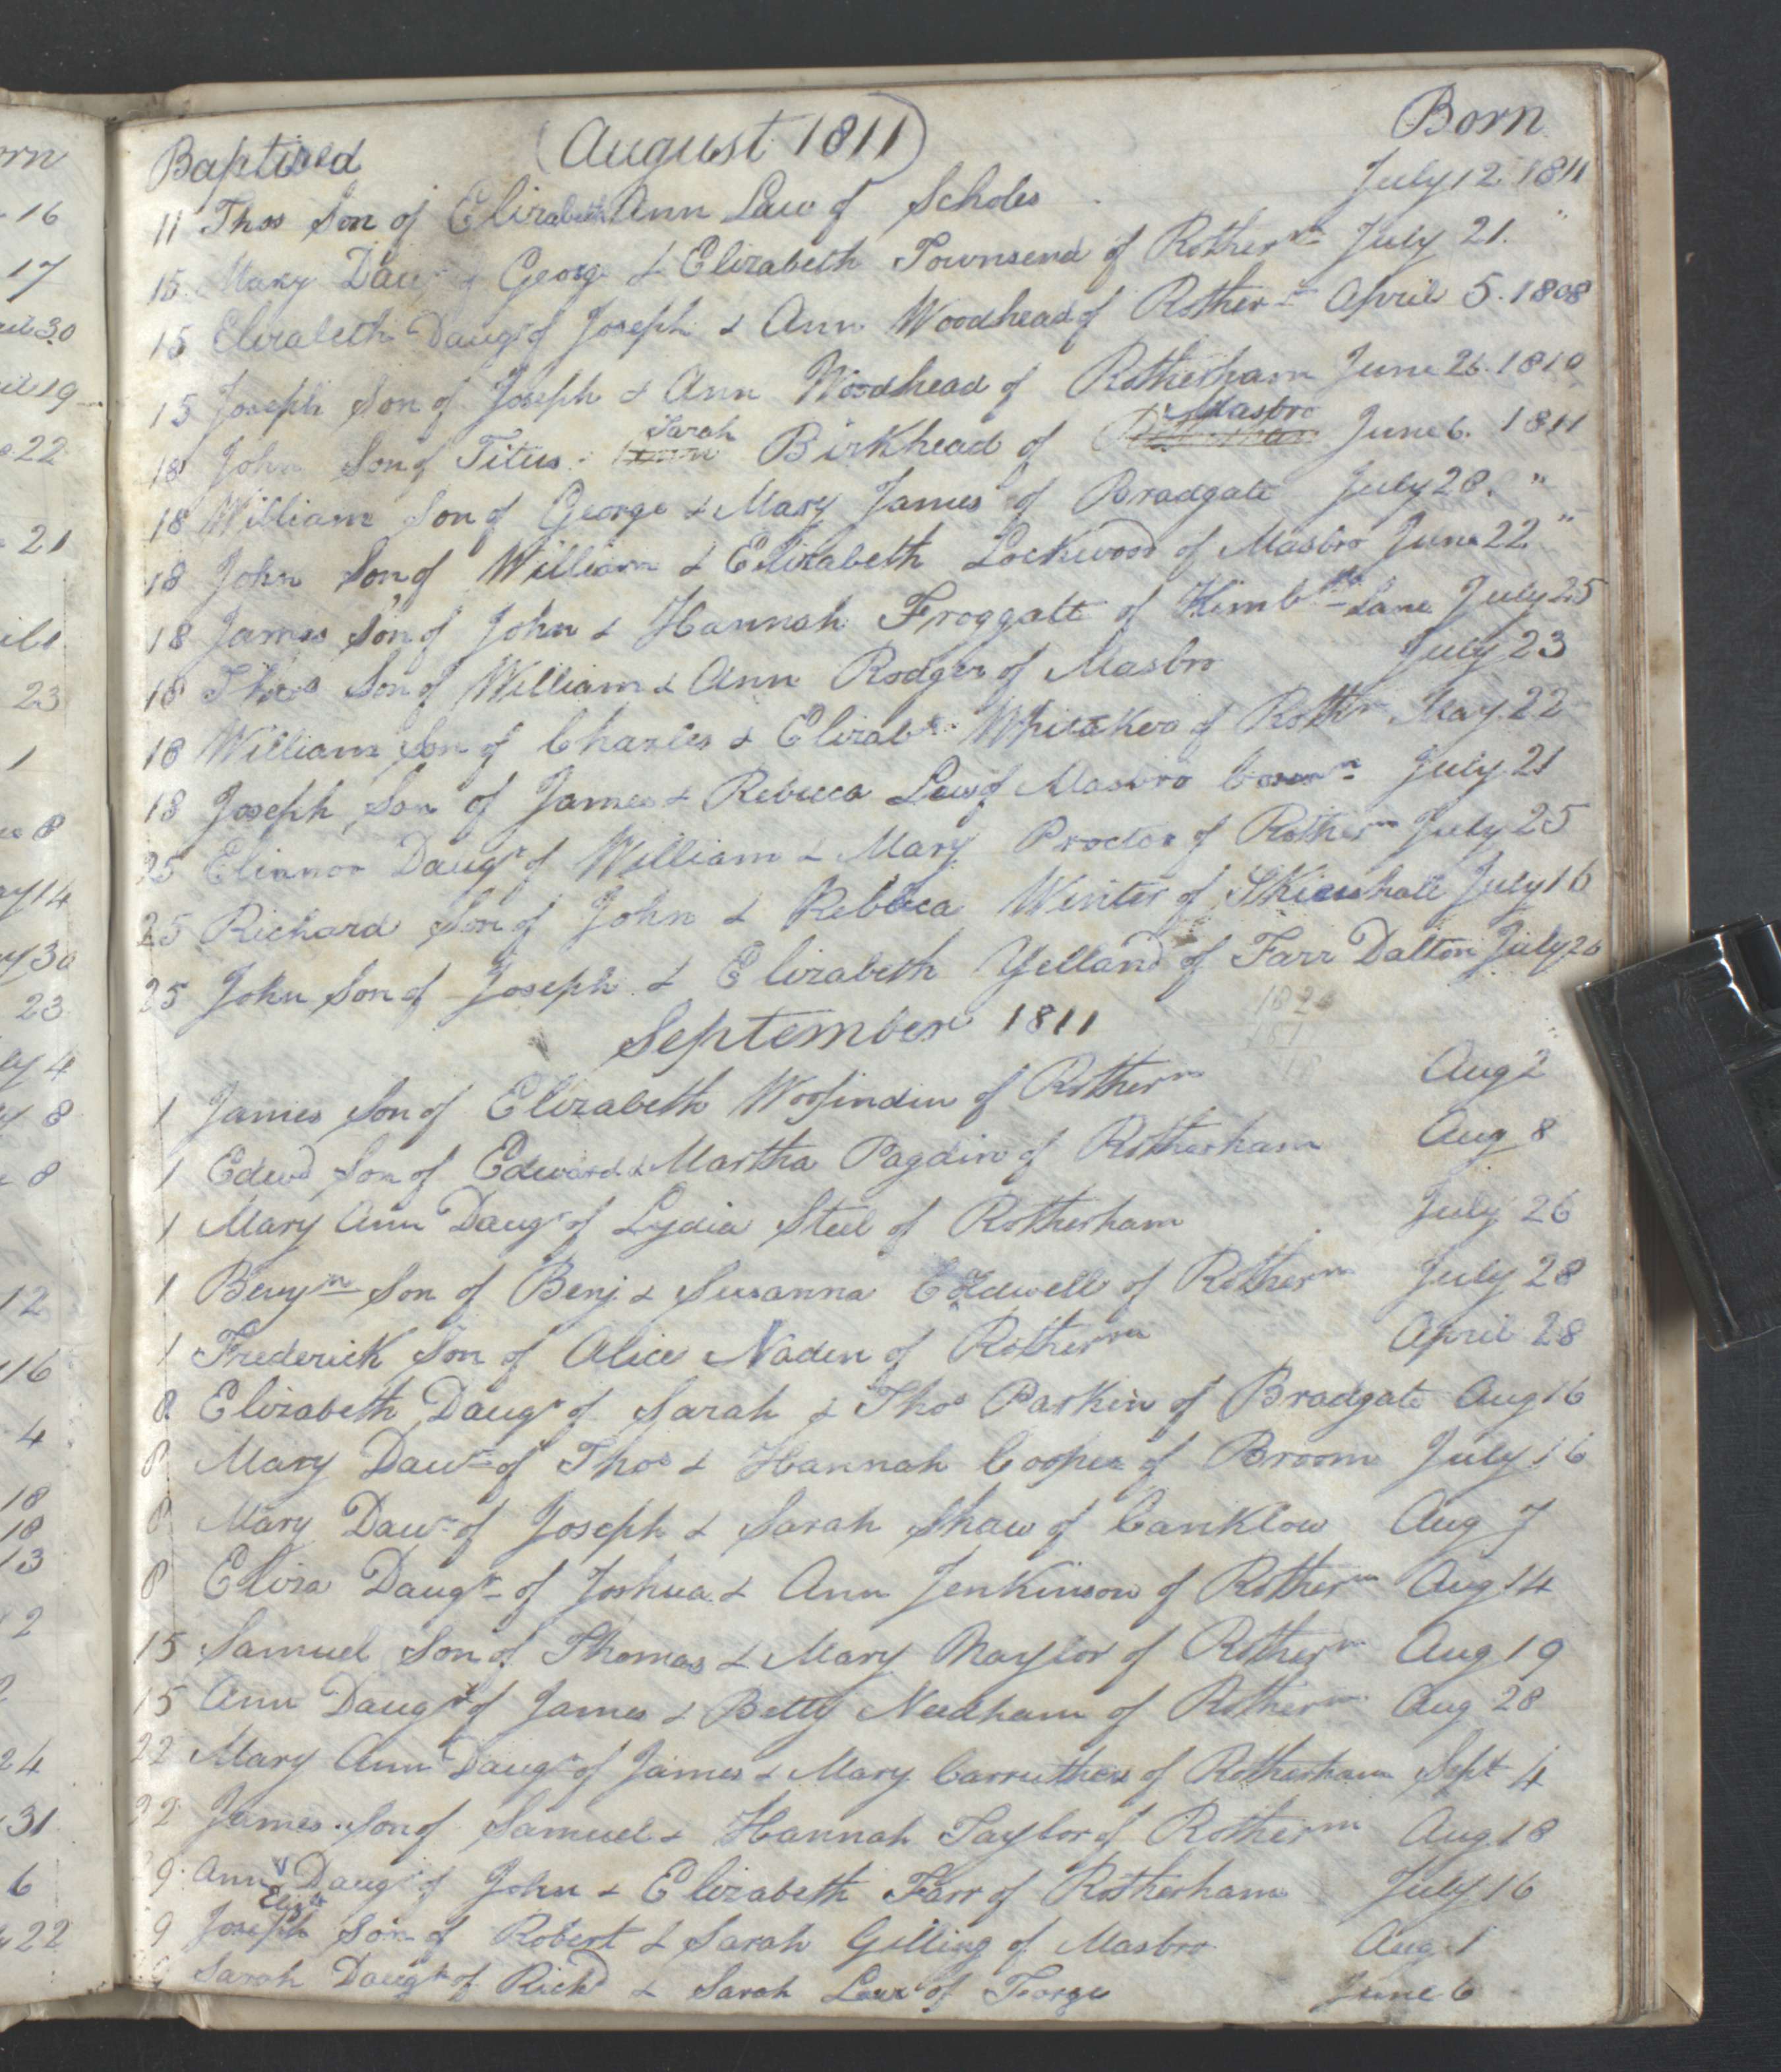 rn
16
17
il 30
il 19
22
21
il 1
23
1
8
y 14
y 30
23
y 4
y 8
8
12
16
4
18
18
13
2
2
24
31
6
22
Baptised (August 1811) Born
11 Thos Son of Elizabeth Ann Law of Scholes July 12 1811
15 Mary Daur of George & Elizabeth Townsend of Rotherm July 21. "
15 Elizabeth Daugr of Joseph & Ann Woodhead of Rotherm April 5. 1808
15 Joseph Son of Joseph & Ann Woodhead of Rotherham June 26. 1810
18 John Son of Titus Sarah Birkhead of Masbro June 6. 1811
18 William Son of George & Mary James of Bradgate July 28. "
18 John Son of William & Elizabeth Lockwood of Masbro June 22 "
18 James Son of John & Hannah Froggatt of Kimbth Lane July 25
18 Thos Son of William & Ann Rodger of Masbro July 23
18 William Son of Charles & Elizabh Whitakers of Rothm May 22
18 Joseph Son of James & Rebecca Law of Masbro July 21
25 Elinnor Daugr of William & Mary Proctor of Rotherm July 25
25 Richard Son of John & Rebecca Winter of July 16
25 John Son of Joseph & Elizabeth Yelland of Farr Dalton July 20
September 1811
1 James Son of Elizabeth Woofinden of Rotherm Aug 2
1 Edwd Son of Edward & Martha Pagdin of Rotherham Aug 8
1 Mary Ann Daugr of Lydia Steel of Rotherham July 26
1 Benjn Son of Benj & Susanna of Rotherm July 28
1 Frederick Son of Alice Naden of Rotherm April 28
8 Elizabeth Daugr of Sarah & Thos Parkin of Bradgate Aug 16
8 Mary Daur of Thos & Hannah Cooper of Broom July 16
8 Mary Daur of Joseph & Sarah Shaw of Canklow Aug 7
8 Eliza Daugr of Joshua & Ann Jenkinson of Rotherm Aug 14
15 Samuel Son of Thomas & Mary Naylor of Rotherm Aug 19
15 Ann Daugr of James & Betty Needham of Rotherm Aug 28
22 Mary Ann Daugr of James & Mary Carruthers of Rotherham Sept 4
22 James Son of Samuel & Hannah Taylor of Rotherm Aug 18
9 Ann Elizth Daugr of John & Elizabeth Farr of Rotherham July 16
9 Joseph Son of Robert & Sarah Gilling of Masbro Aug 1
9 Sarah Daugr of Richd & Sarah Law of Forge June 6